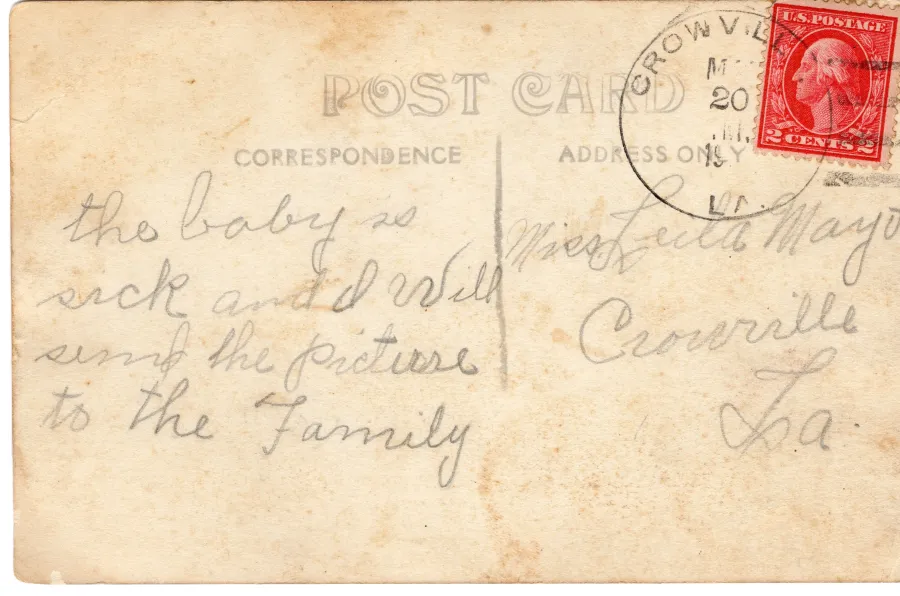 CROWVILL
M
20
19
LA.
U.S. POSTAGE
2 CENTS 2
POST CARD
CORRESPONDENCE
ADDRESS ONLY
the baby is
sick and I Will
send the picture
to the Family
Miss Leila Mayo
Crowville
La.